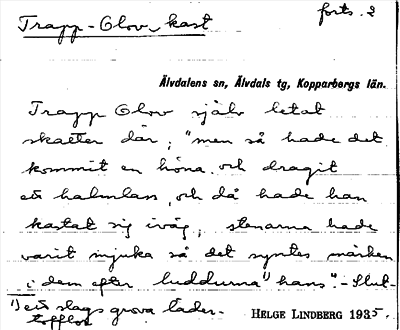 Trapp-Olov-kast
forts. 2
Älvdalens sn, Älvdals tg, Kopparbergs län.
Trapp Olov själv letat
skatter där; "men så hade det
kommit en höna och dragit
ett halmlass, och då hade han
kastat sig iväg; stenarna hade
varit mjuka så det syntes märken
i dem efter luddurna¹) hans". - Slut-
¹) ett slags grova läder-
tofflor
HELGE LINDBERG 1935.